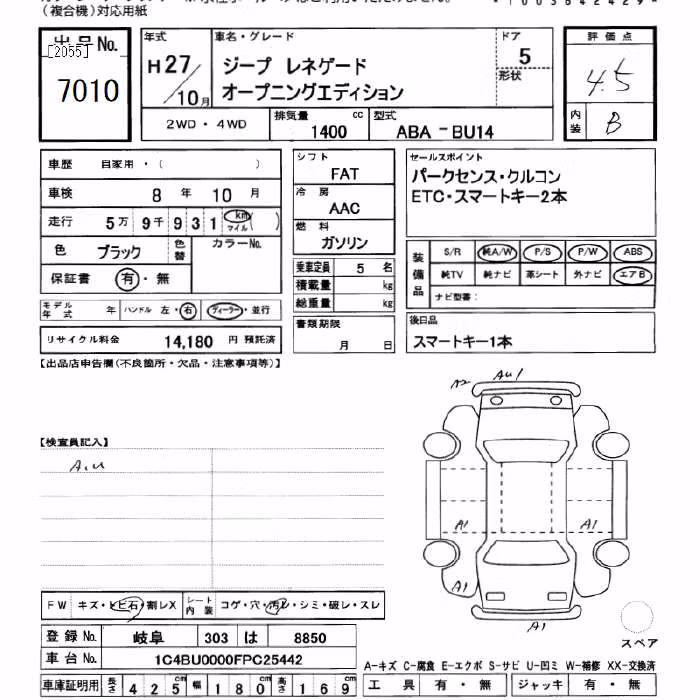 （複合機）対応用紙
出品No.
[2055]
7010
年式
H27/10月
車名・グレード
ジープ レネゲード
オープニングエディション
ドア
5
形状
評価点
4.5
内装
B
2WD・4WD
排気量
1400 cc
型式
ABA－BU14
車歴 自家用・（ ）
車検 8 年 10 月
走行 5万 9千 9 3 1 km マイル( )
色 ブラック 色替 カラーNo.
保証書 有・無
シフト
FAT
冷房
AAC
燃料
ガソリン
乗車定員 5 名
積載量 kg
総重量 kg
書類期限
月 日
セールスポイント
パークセンス・クルコン
ETC・スマートキー2本
装備品
S/R 純A/W P/S P/W ABS
純TV 純ナビ 革シート 外ナビ エアB
ナビ型番：
後日品
スマートキー1本
モデル年式 年 ハンドル 左・右 ディーラー・並行
リサイクル料金 14,180 円 預託済
【出品店申告欄(不良箇所・欠品・注意事項等)】
【検査員記入】
A,U
A2 AU1
A1 A1
A1 A1
A1
スペア
FW キズ・トビ石・割レX シート内装 コゲ・穴・汚レ・シミ・破レ・スレ
登録No. 岐阜 303 は 8850
車台No. 1C4BU0000FPC25442
車庫証明用 長さ 425 cm 幅 180 cm 高さ 169 cm
A－キズ C－腐食 E－エクボ S－サビ U－凹ミ W－補修 XX－交換済
工具 有・無 ジャッキ 有・無